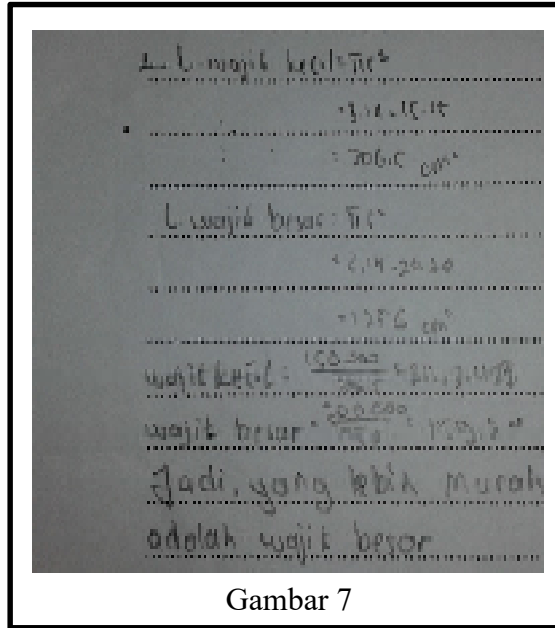 L wajik kecil = πr²
= 3,14 . 15 . 15
= 706,5 cm²
L wajik besar = πr²
= 3,14 . 20 . 20
= 1256 cm²
wajik kecil = 150.000 / 706,5 =
wajik besar = 200.000 /
Jadi, yang lebih murah
adalah wajik besar
Gambar 7